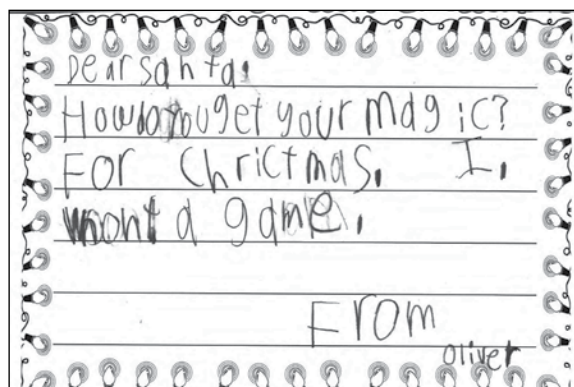 Dear santa.
How do you get your magic?
For Chrictmas. I.
wont a game.
From
oliver